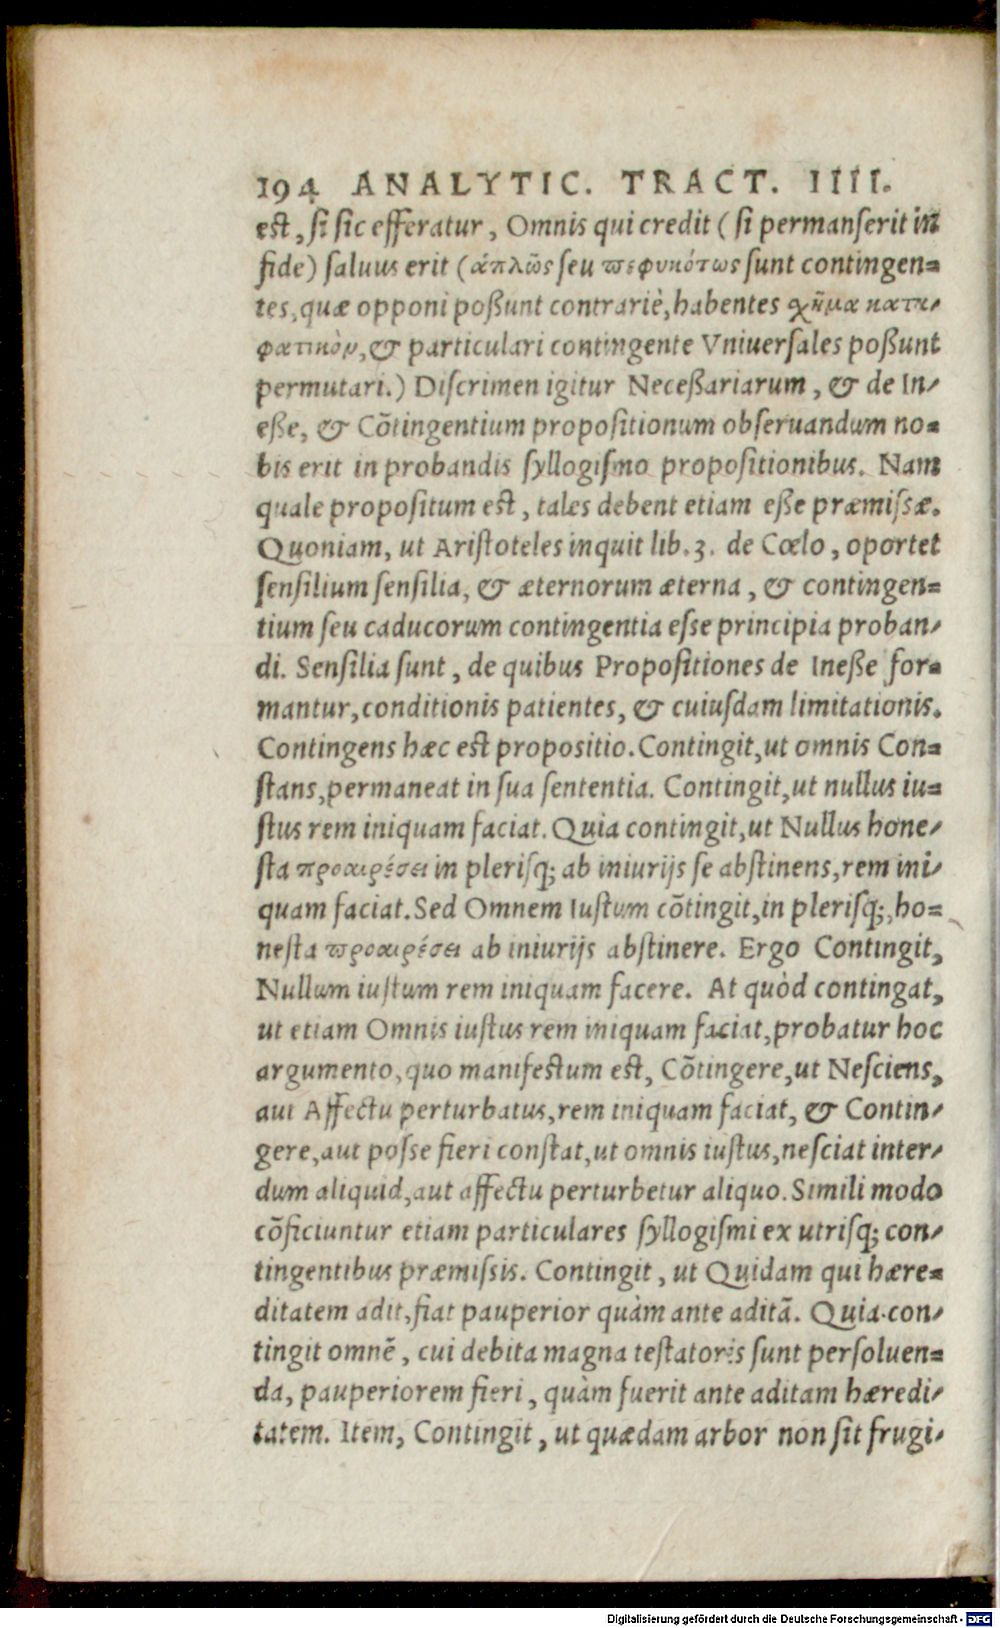 194 ANALYTIC. TRACT. IIII.
est, si sic efferatur, Omnis qui credit (si permanserit in
fide) saluus erit (ἁπλῶς seu πεφυκότως sunt contingen=
tes, quæ opponi poßunt contrariè, habentes χῆμα κατα-
φατικὸν, & particulari contingente Vniuersales poßunt
permutari.) Discrimen igitur Neceßariarum, & de In-
eße, & Cõtingentium propositionum obseruandum no=
bis erit in probandis syllogismo propositionibus. Nam
quale propositum est, tales debent etiam eße præmissæ.
Quoniam, ut Aristoteles inquit lib. 3. de Cœlo, oportet
sensilium sensilia, & æternorum æterna, & contingen=
tium seu caducorum contingentia esse principia proban-
di. Sensilia sunt, de quibus Propositiones de Ineße for=
mantur, conditionis patientes, & cuiusdam limitationis.
Contingens hæc est propositio. Contingit, ut omnis Con=
stans, permaneat in sua sententia. Contingit, ut nullus iu=
stus rem iniquam faciat. Quia contingit, ut Nullus hone-
sta προαιρέσει in plerisq; ab iniurijs se abstinens, rem ini-
quam faciat. Sed Omnem Iustum cõtingit, in plerisq;, ho=
nesta προαιρέσει ab iniurijs abstinere. Ergo Contingit,
Nullum iustum rem iniquam facere. At quòd contingat,
ut etiam Omnis iustus rem iniquam faciat, probatur hoc
argumento, quo manifestum est, Cõtingere, ut Nesciens,
aut Affectu perturbatus, rem iniquam faciat, & Contin-
gere, aut posse fieri constat, ut omnis iustus, nesciat inter-
dum aliquid, aut affectu perturbetur aliquo. Simili modo
cõficiuntur etiam particulares syllogismi ex utrisq; con-
tingentibus præmissis. Contingit, ut Quidam qui hære=
ditatem adit, fiat pauperior quàm ante aditã. Quia con-
tingit omnẽ, cui debita magna testatoris sunt persoluen=
da, pauperiorem fieri, quàm fuerit ante aditam hæredi-
tatem. Item, Contingit, ut quædam arbor non sit frugi-
Digitalisierung gefördert durch die Deutsche Forschungsgemeinschaft - DFG